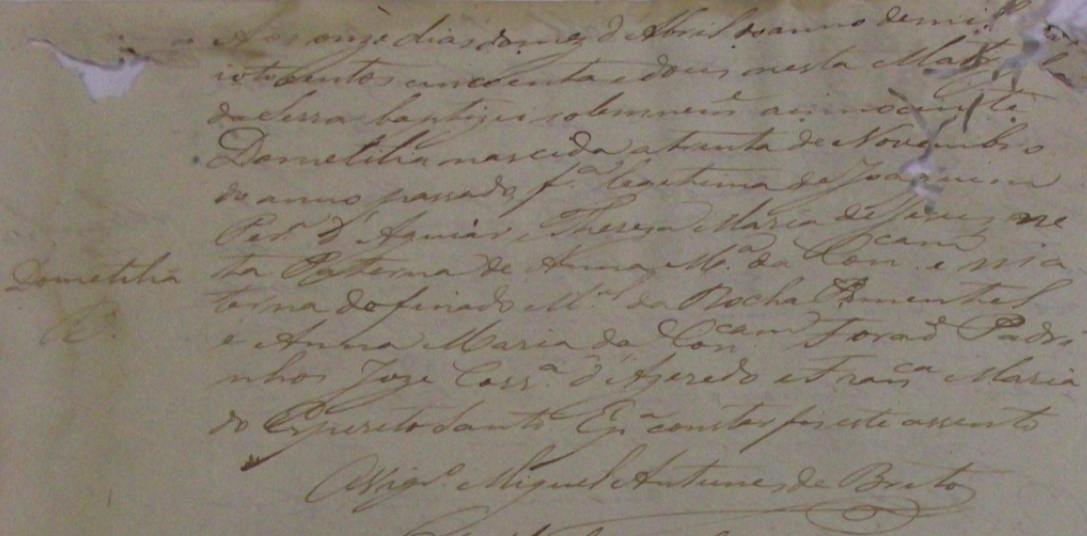 Aos onze dias do mez d'Abril do anno de mil
oitocentos cincoenta e dous nesta Matriz
da Serra baptizei solemnem.e a innocente
Dometilia nascida a trinta de Novembro
do anno passado, f.a legitima de Joaquim
Per.a d'Aguiar, Thereza Maria de Jesus, ne
ta Paterna de Anna M.a da Con.cam e ma
Dometilia
terna do finado M.el da Rocha Pimentel
e Anna Maria da Con.cam Forão Padri
nhos Joze Corr.a d'Azeredo e Fran.ca Maria
do Espereto Santo E p.a constar fiz este assento
Assig.o Miguel Antunes de Brito